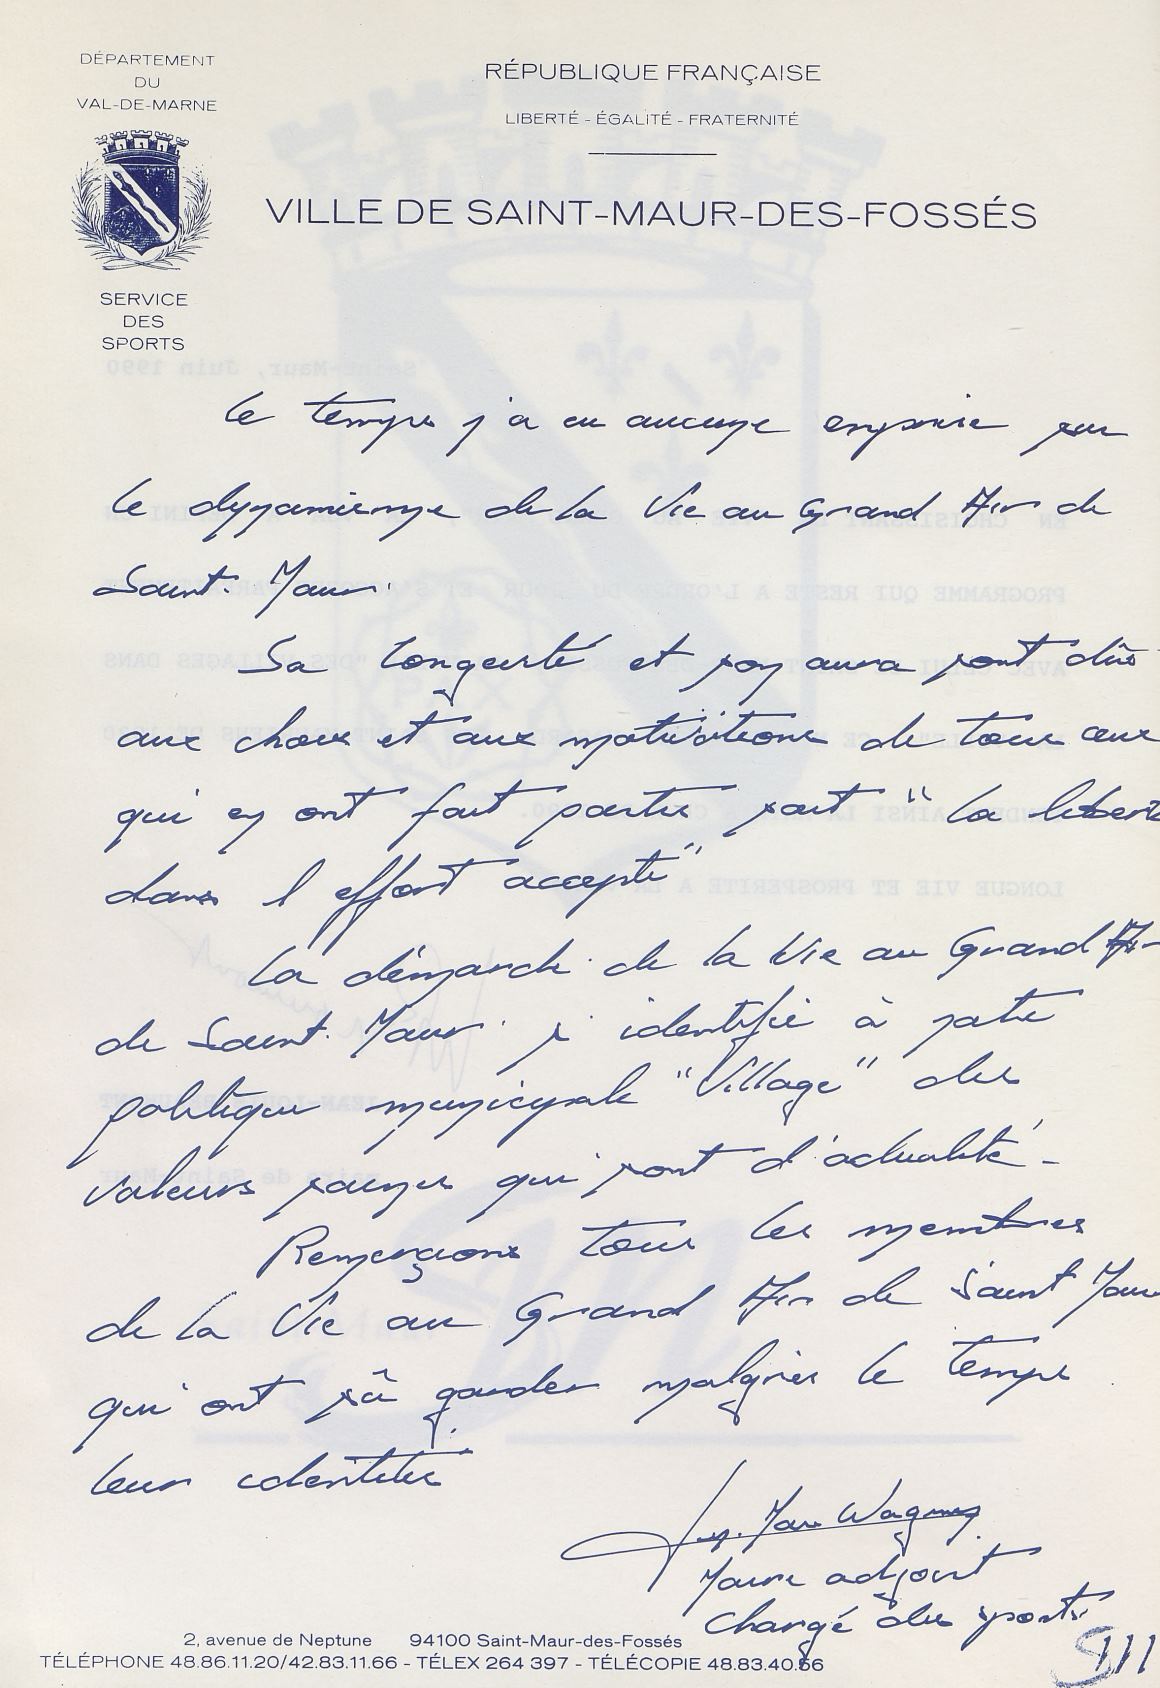 DÉPARTEMENT
DU
VAL-DE-MARNE
SERVICE
DES
SPORTS
RÉPUBLIQUE FRANÇAISE
LIBERTÉ - ÉGALITÉ - FRATERNITÉ
VILLE DE SAINT-MAUR-DES-FOSSÉS
le temps n'a eu aucune emprise sur
le dynamisme de la Vie au Grand Air de
Saint. Maur.
Sa longévité et son aura sont dûs
aux choix et aux motivations de tous ceux
qui en ont fait partie soit "la liberté
dans l effort accepté"
La démarche de la Vie au Grand Air
de Saint. Maur s identifie à notre
politique municipale "Village" des
valeurs saines qui sont d'actualité -
Remerçions tous les membres
de la Vie au Grand Air de Saint Maur
qui ont sû garder malgrés le temps
leur identité
J. Marc Wagner
Maire adjoint
chargé des sports
2, avenue de Neptune 94100 Saint-Maur-des-Fossés
TÉLÉPHONE 48.86.11.20/42.83.11.66 - TÉLEX 264 397 - TÉLÉCOPIE 48.83.40.56